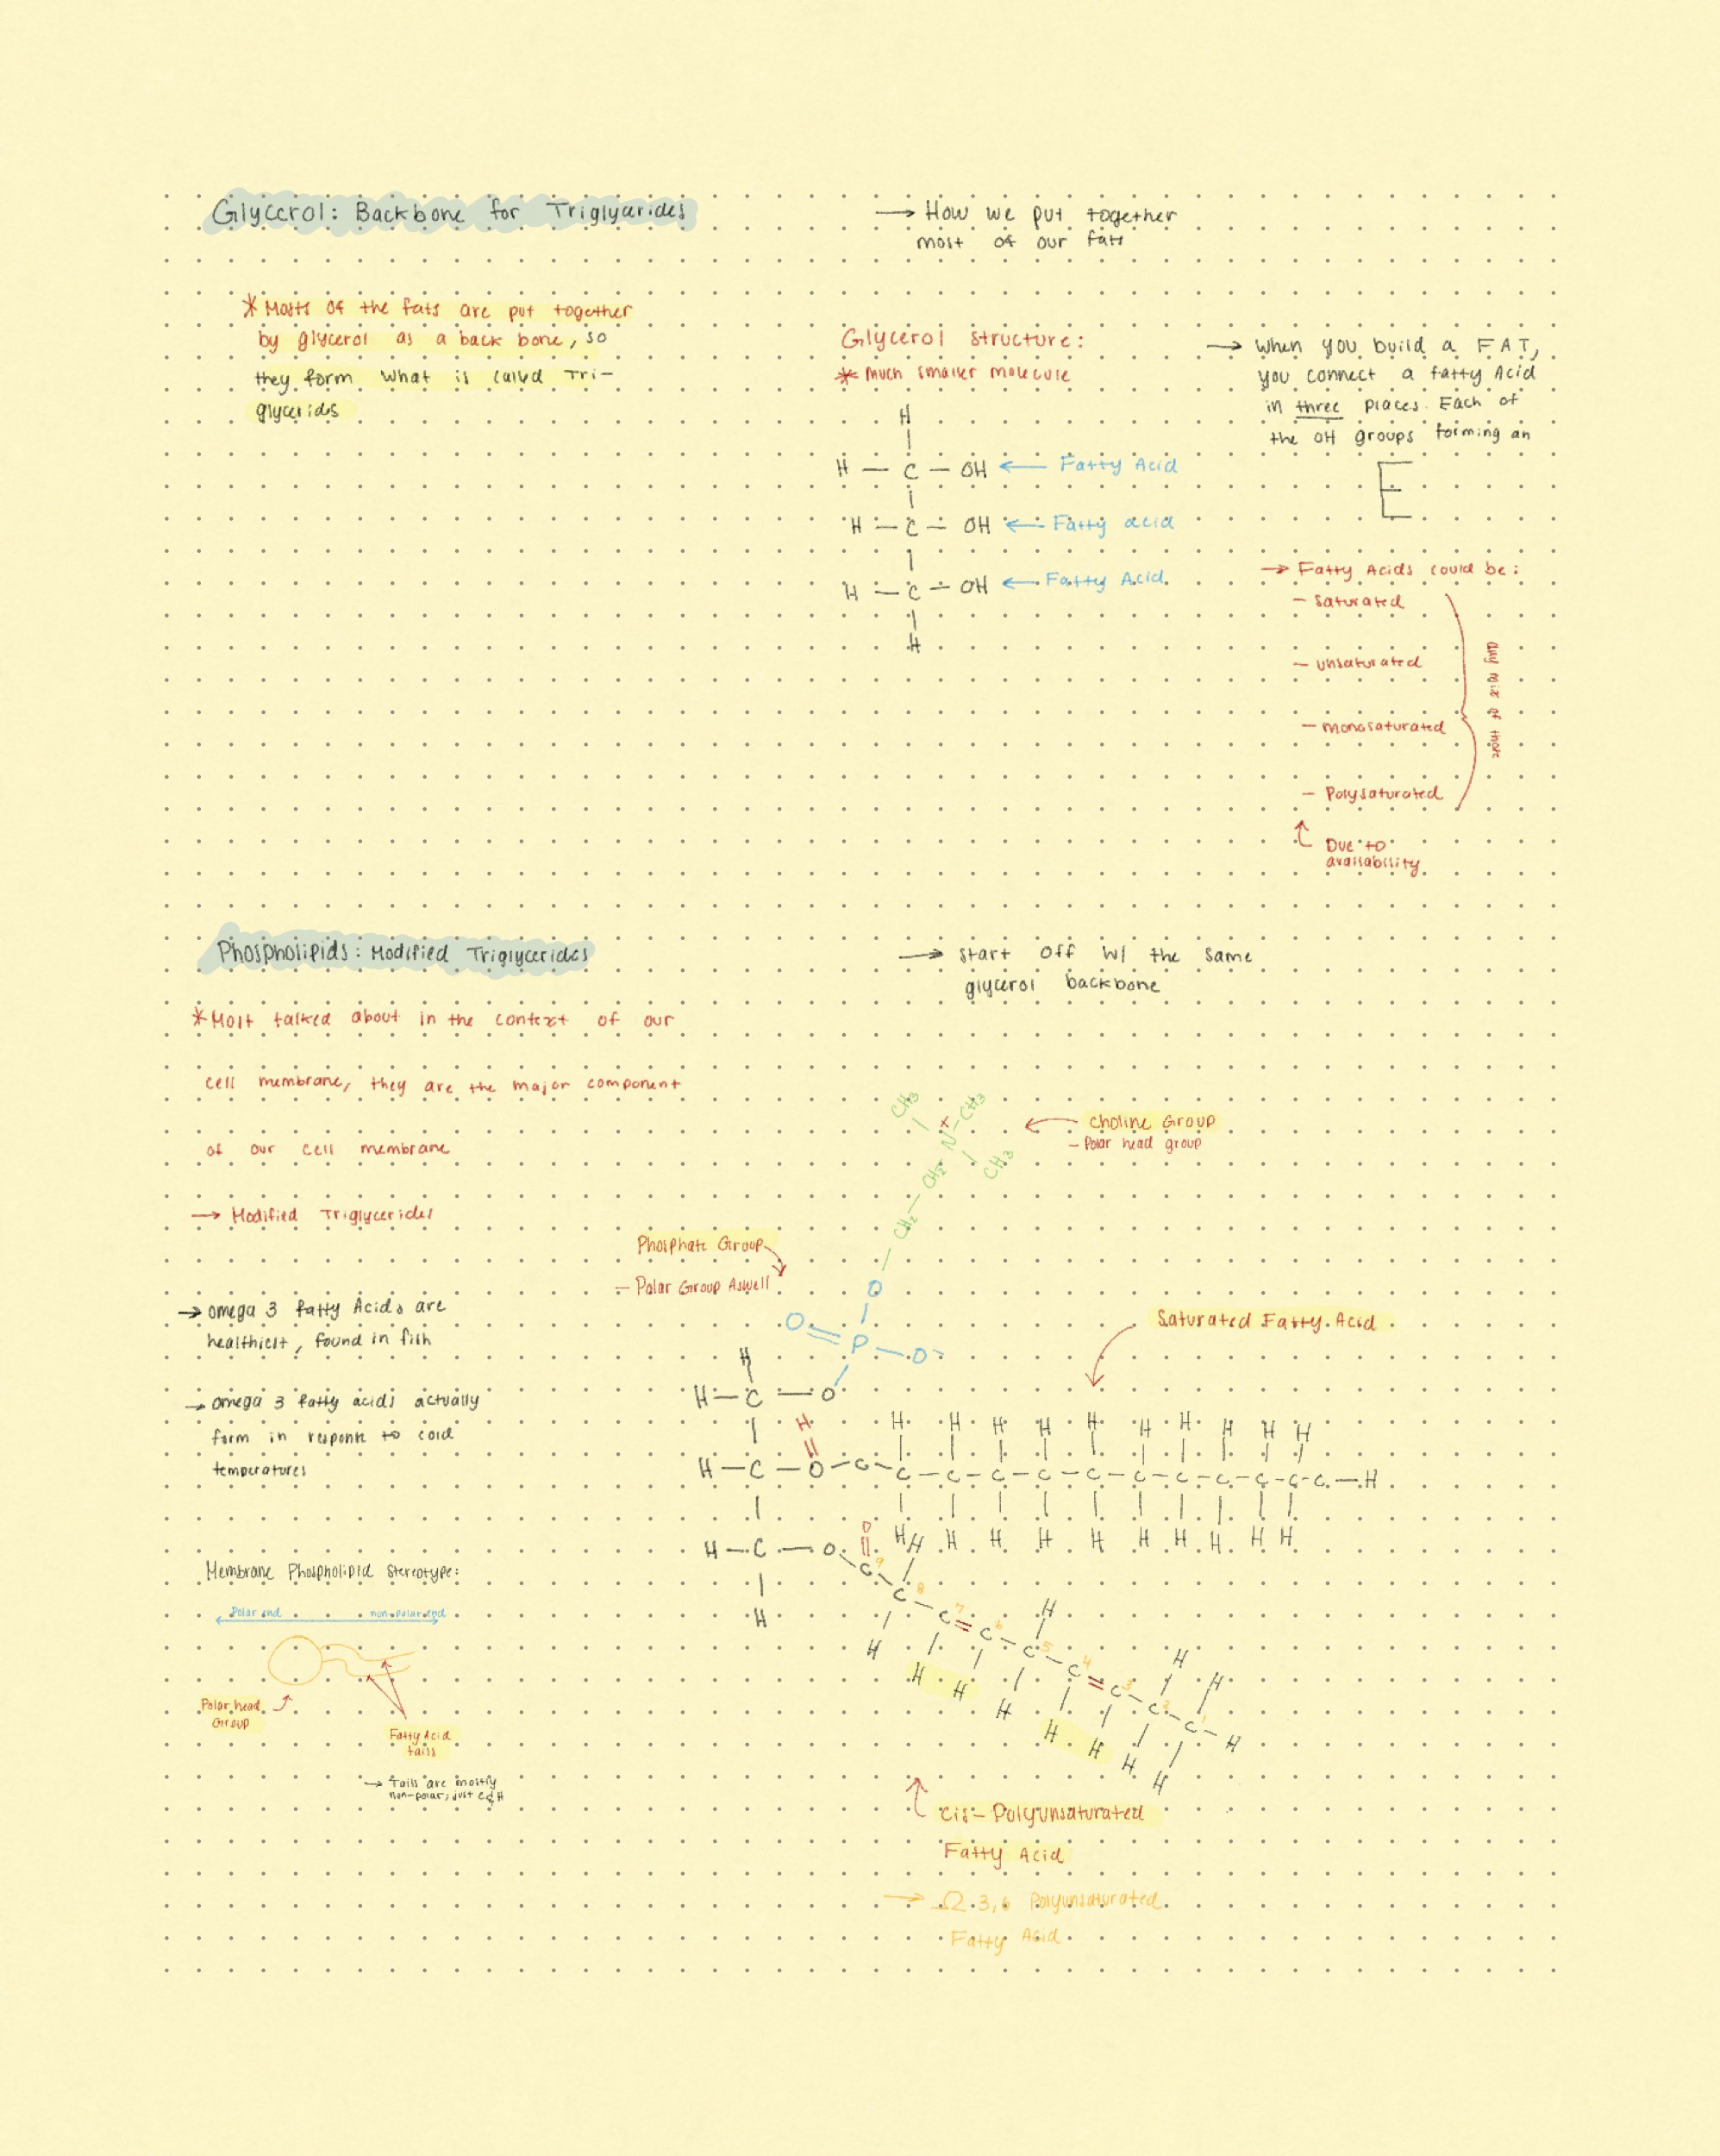 Glycerol: Backbone for Triglycerides
→ How we put together
most of our fats
* Mosts of the fats are put together
by glycerol as a back bone, so
they form what is called Tri-
glycerides
Glycerol structure:
* Much smaller molecule
H
H — C — OH ← Fatty Acid
H — C — OH ← Fatty acid
H — C — OH ← Fatty Acid
H
→ When you build a FAT,
you connect a fatty Acid
in three places. Each of
the OH groups forming an
E
→ Fatty Acids could be:
- saturated
- unsaturated
- monosaturated
- Polysaturated
any mix of those
Due to
availability
Phospholipids: Modified Triglycerides
→ start off w/ the same
glycerol backbone
* Most talked about in the context of our
cell membrane, they are the major component
of our cell membrane
→ Modified Triglycerides
→ omega 3 fatty Acids are
healthiest, found in fish
→ omega 3 fatty acids actually
form in response to cold
temperatures
Membrane Phospholipid Stereotype:
Polar end non-polar end
Polar head
Group
Fatty Acid
tails
→ Tails are mostly
non-polar; just C & H
CH3
N+ — CH3
CH3
CH2
CH2
Choline Group
- Polar head group
Phosphate Group
- Polar Group Aswell
O
O = P — O-
H
H — C — O
H
H — C — O — C — C — C — C — C — C — C — C — C — C — C — C — H
H H H H H H H H H H
H H H H H H H H H H
Saturated Fatty Acid
O
H — C — O
H
C 9 C 8 C 7 = C 6 C 5 C 4 = C 3 C 2 C 1 — H
H H H H
H H H H H H H H
cis- Polyunsaturated
Fatty Acid
→ Ω 3,6 Polyunsaturated
Fatty Acid